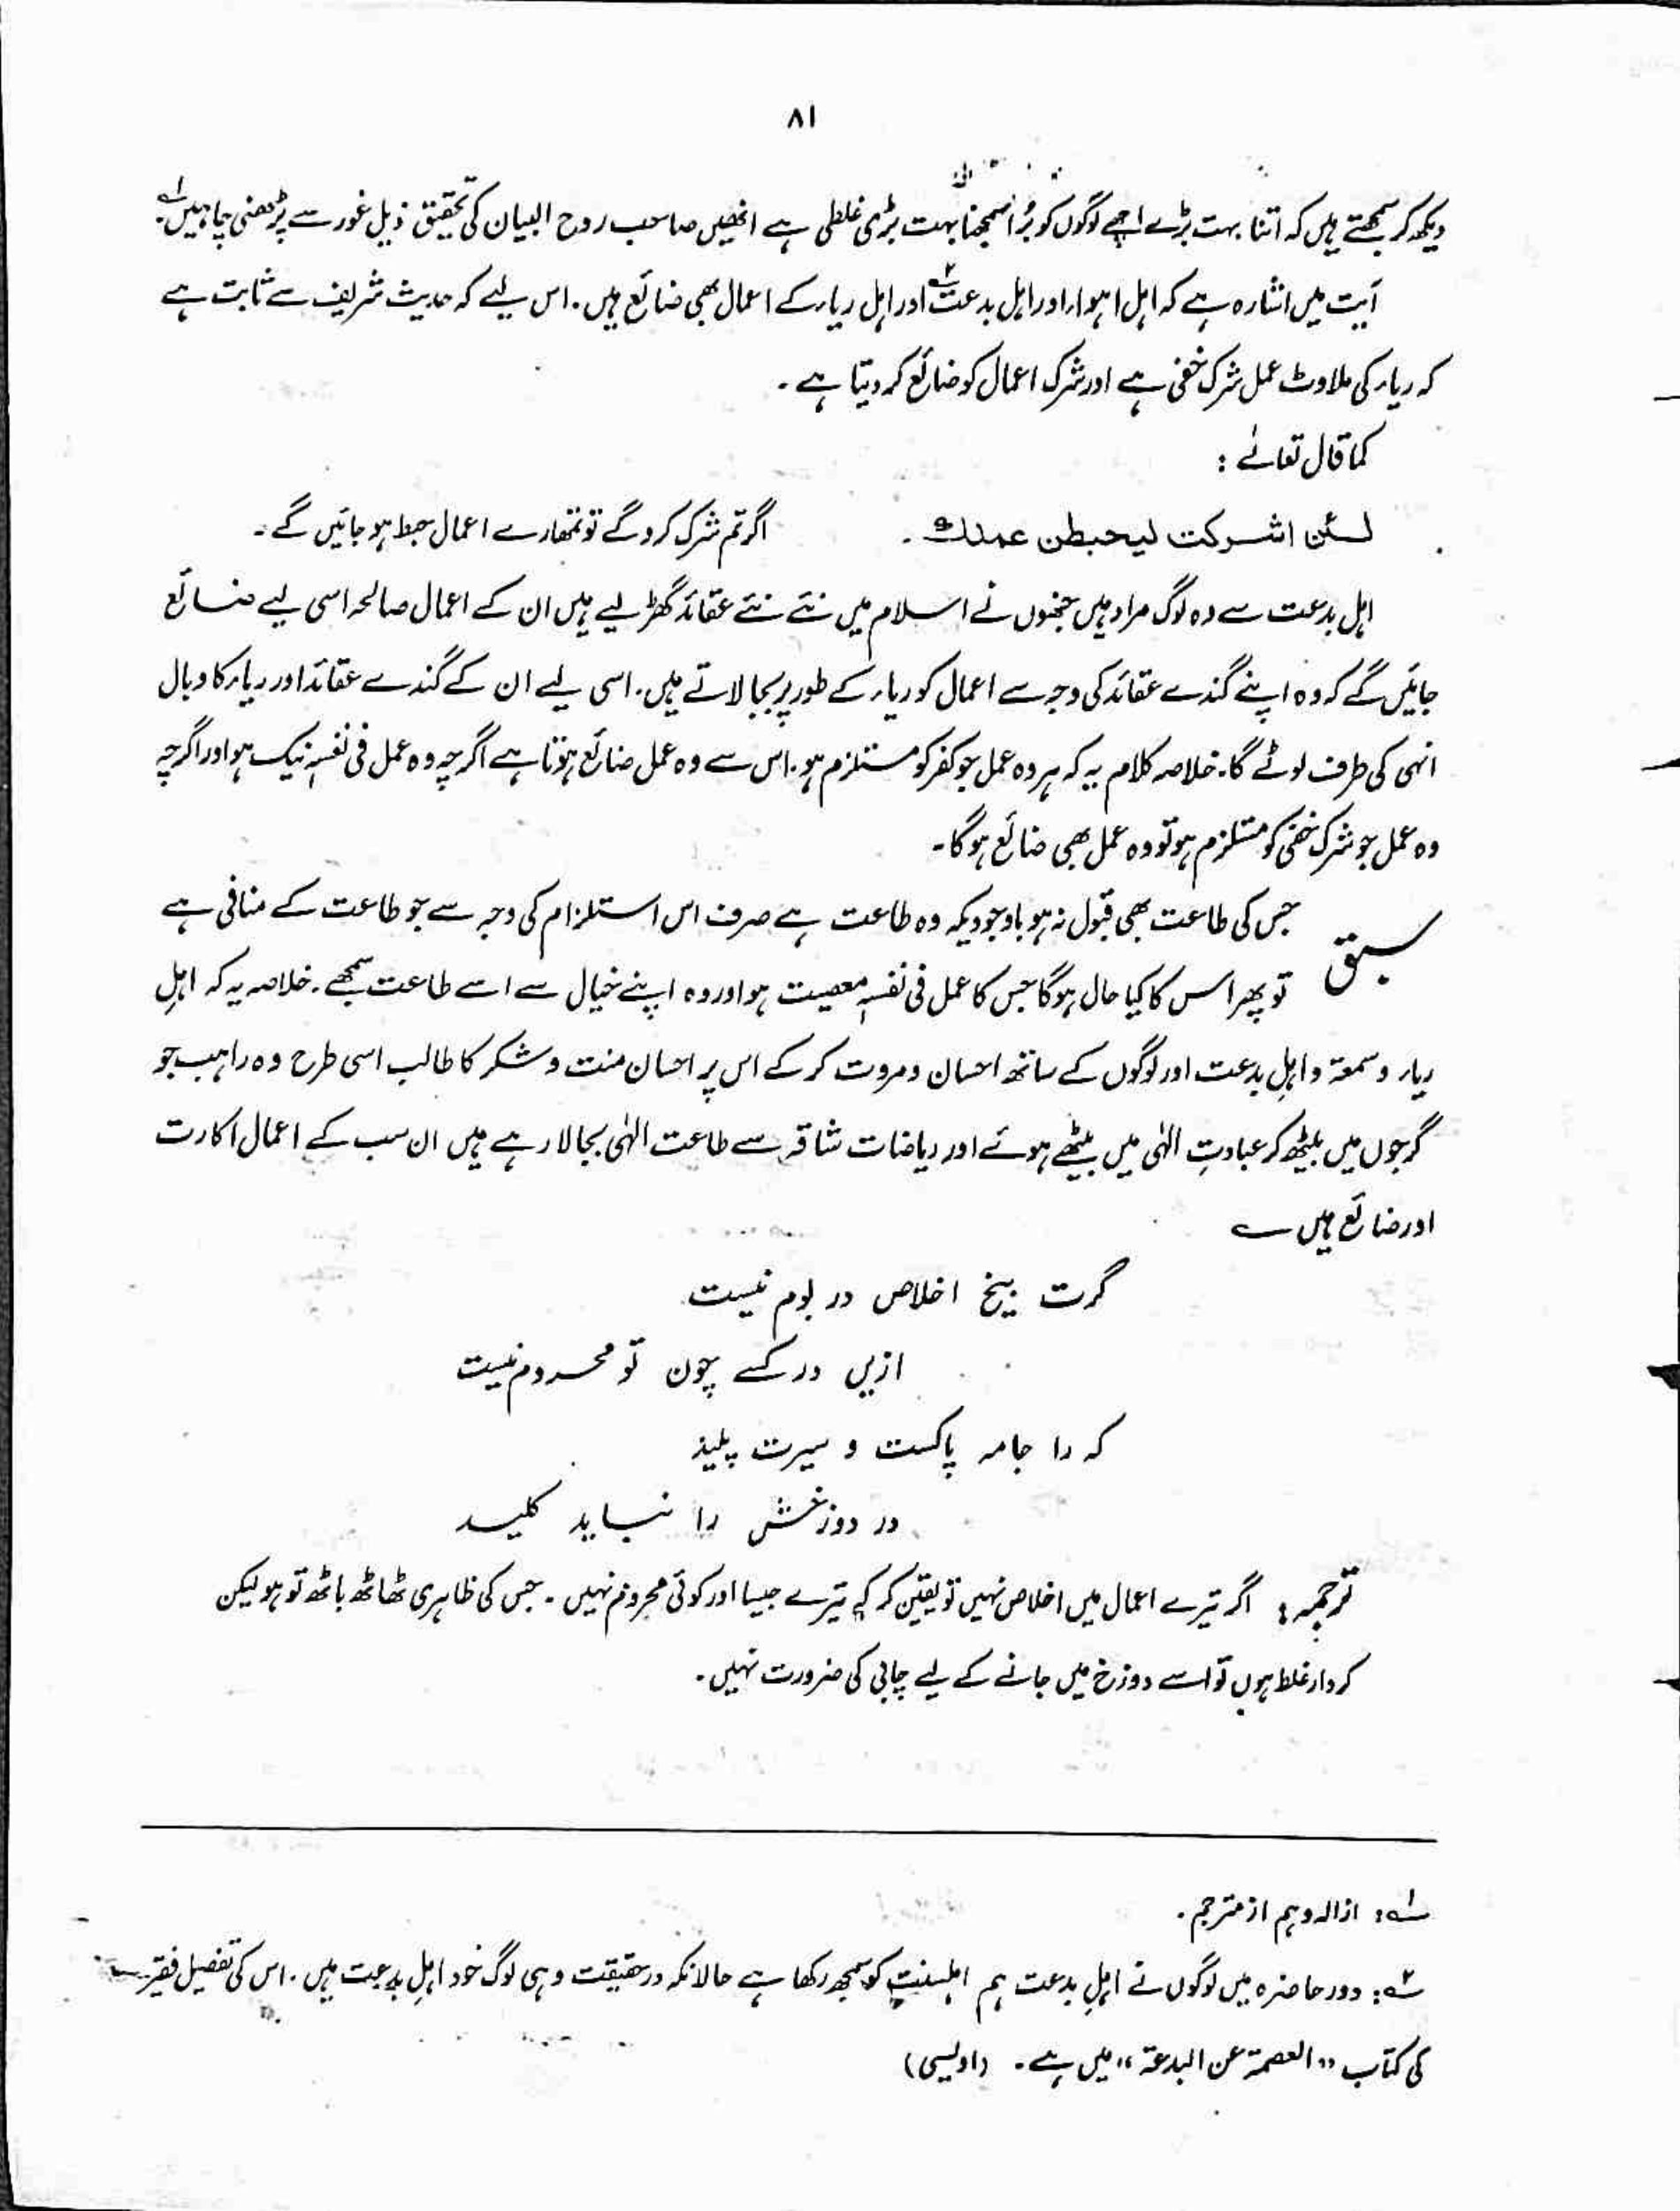 ۸۱
دیکھ کر سمجھتے ہیں کہ اتنا بہت بڑے اچھے لوگوں کو بُرا سمجھنا بہت بڑی غلطی ہے انھیں صاحب روح البیان کی تحقیق ذیل غور سے پڑھنی چاہئیں؂۱۔
آیت میں اشارہ ہے کہ اہل اہواء اور اہل بدعت؂۲ اور اہل ریاء کے اعمال بھی ضائع ہیں۔ اس لیے کہ حدیث شریف سے ثابت ہے
کہ ریاء کی ملاوٹ عمل شرک خفی ہے اور شرک اعمال کو ضائع کر دیتا ہے۔
کما قال تعالےٰ :
لئن اشرکت لیحبطن عملک۔ اگر تم شرک کرو گے تو تمھارے اعمال حبط ہو جائیں گے۔
اہل بدعت سے وہ لوگ مراد ہیں جنہوں نے اسلام میں نئے نئے عقائد گھڑ لیے ہیں ان کے اعمال صالحہ اسی لیے ضائع
جائیں گے کہ وہ اپنے گندے عقائد کی وجہ سے اعمال کو ریاء کے طور پر بجا لاتے ہیں۔ اسی لیے ان کے گندے عقائد اور ریاء کا وبال
انہی کی طرف لوٹے گا۔ خلاصہ کلام یہ کہ ہر وہ عمل جو کفر کو مستلزم ہو۔ اس سے وہ عمل ضائع ہوتا ہے اگرچہ وہ عمل فی نفسہٖ نیک ہو اور اگرچہ
وہ عمل جو شرک خفی کو مستلزم ہو تو وہ عمل بھی ضائع ہو گا۔
سبق جس کی طاعت بھی قبول نہ ہو باوجودیکہ وہ طاعت ہے صرف اس استلزام کی وجہ سے جو طاعت کے منافی ہے
تو پھر اس کا کیا حال ہوگا جس کا عمل فی نفسہٖ معصیت ہو اور وہ اپنے خیال سے اسے طاعت سمجھے۔ خلاصہ یہ کہ اہلِ
ریاء و سمعۃ و اہلِ بدعت اور لوگوں کے ساتھ احسان و مروت کر کے اس پر احسان منت و شکر کا طالب اسی طرح وہ راہب جو
گرجوں میں بیٹھ کر عبادتِ الٰہی میں بیٹھے ہوئے اور ریاضات شاقہ سے طاعت الٰہی بجا لا رہے ہیں ان سب کے اعمال اکارت
اور ضائع ہیں ؎
گرت بیخ اخلاص در بوم نیست
ازیں در کسے چون تو محروم نیست
کہ را جامہ پاکست و سیرت پلید
در دوزخش را نباید کلید
ترجمہ: اگر تیرے اعمال میں اخلاص نہیں تو یقین کر کہ تیرے جیسا اور کوئی محروم نہیں۔ جس کی ظاہری ٹھاٹھ باٹھ تو ہو لیکن
کردار غلط ہوں تو اسے دوزخ میں جانے کے لیے چابی کی ضرورت نہیں۔
؂۱: ازالہ وہم از مترجم۔
؂۲: دور حاضرہ میں لوگوں نے اہلِ بدعت ہم اہلسنت کو سمجھ رکھا ہے حالانکہ در حقیقت وہی لوگ خود اہلِ بدعت ہیں۔ اس کی تفصیل فقیر
کی کتاب "العصمۃ عن البدعۃ" میں ہے۔ (اویسی)